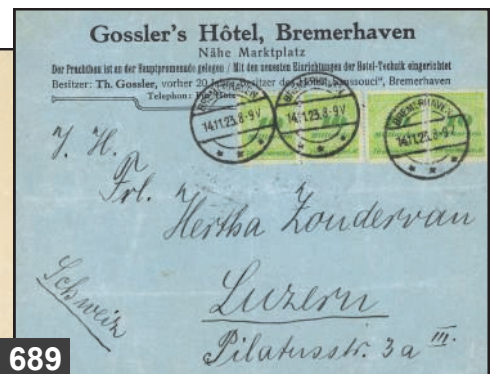 Gossler's Hôtel, Bremerhaven
Nähe Marktplatz
Der Prachtbau ist an der Hauptpromenade gelegen / Mit den neuesten Einrichtungen der Hotel-Technik eingerichtet
Besitzer: Th. Gossler, vorher 20 Jahre Besitzer des "Hotel Sanssouci", Bremerhaven
Telephon:
BREMERHAVEN
14.11.23.8-9V
BREMERHAVEN
14.11.23.8-9V
BREMERHAVEN
14.11.23.8-9V
Frl.
Hertha Zondervan
Schweiz
Luzern
Pilatusstr. 3a III.
689